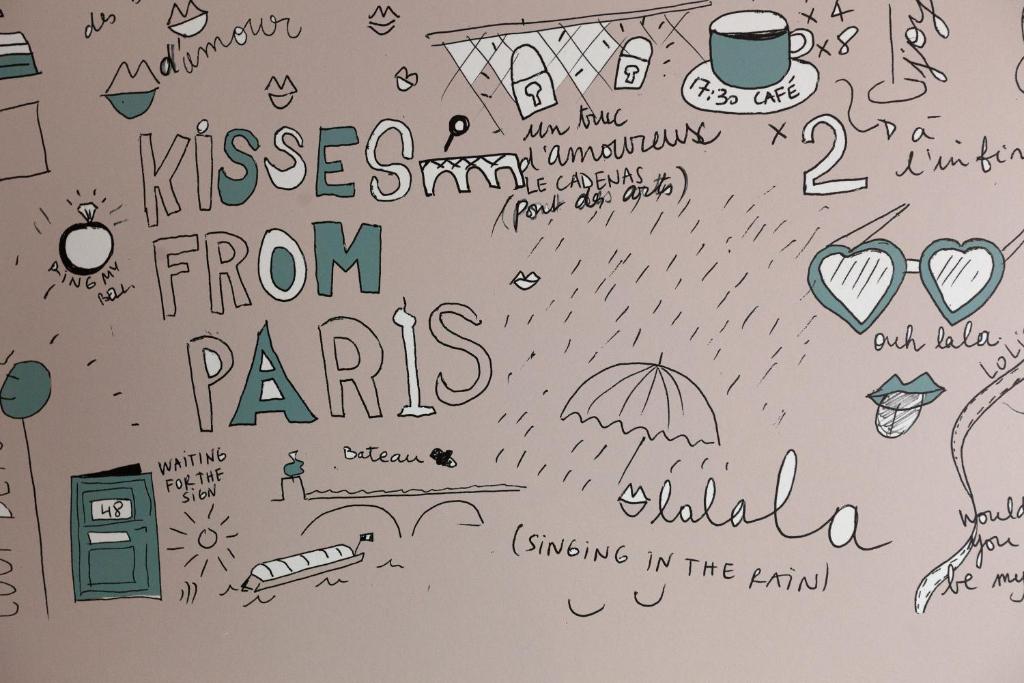 des
d'amour
KISSES
FROM
PARIS
un truc
d'amoureux
LE CADENAS
(Pont des arts)
17:30 CAFÉ
x 4
x 8
x 2
à
l'infin
joy
RING MY
BELL
ouh lala
LOLI
Bateau
WAITING
FOR THE
SIGN
48
lalala
(SINGING IN THE RAIN)
would
you
be my